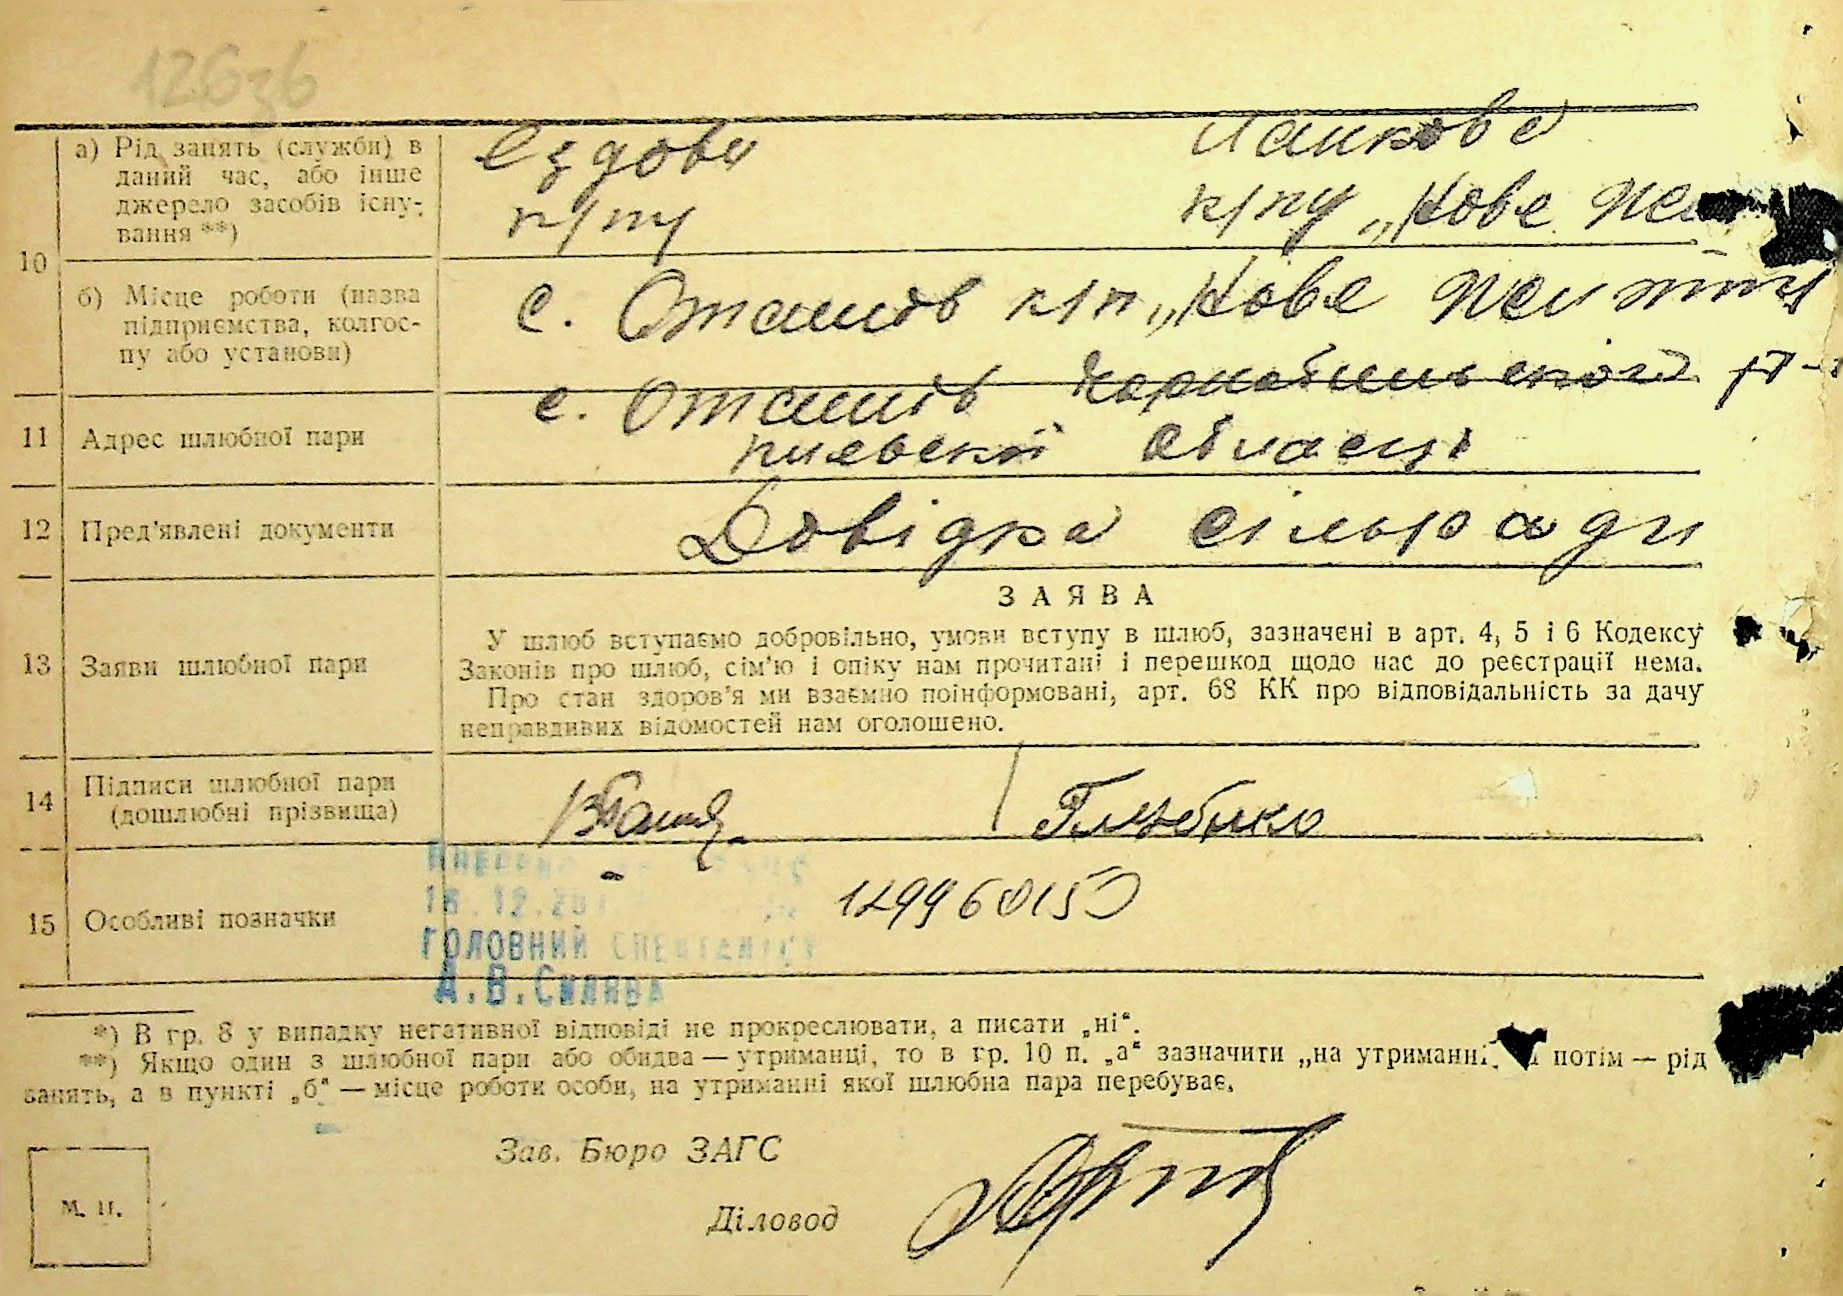 126зв
а) Рід занять (служби) в
даний час, або інше
джерело засобів існу-
вання **)
Єздови
к/пу
Ланкова
к/пу „Нове
10
б) Місце роботи (назва
підприємства, колгос-
пу або установи)
с. Оташів к/п „Нове Життя
11 Адрес шлюбної пари
с. Оташів Чорнобильского р-
києвскої області
12 Пред'явлені документи
Довідка сільради
13 Заяви шлюбної пари
ЗАЯВА
У шлюб вступаємо добровільно, умови вступу в шлюб, зазначені в арт. 4, 5 і 6 Кодексу
Законів про шлюб, сім'ю і опіку нам прочитані і перешкод щодо нас до реєстрації нема.
Про стан здоров'я ми взаємно поінформовані, арт. 68 КК про відповідальність за дачу
неправдивих відомостей нам оголошено.
14 Підписи шлюбної пари
(дошлюбні прізвища)
15 Особливі позначки
ГОЛОВНИЙ СПЕЦІАЛІСТ
*) В гр. 8 у випадку негативної відповіді не прокреслювати, а писати „ні“.
**) Якщо один з шлюбної пари або обидва — утриманці, то в гр. 10 п. „а“ зазначити „на утриманні потім — рід
занять, а в пункті „б“ — місце роботи особи, на утриманні якої шлюбна пара перебуває.
Зав. Бюро ЗАГС
Діловод
М. П.